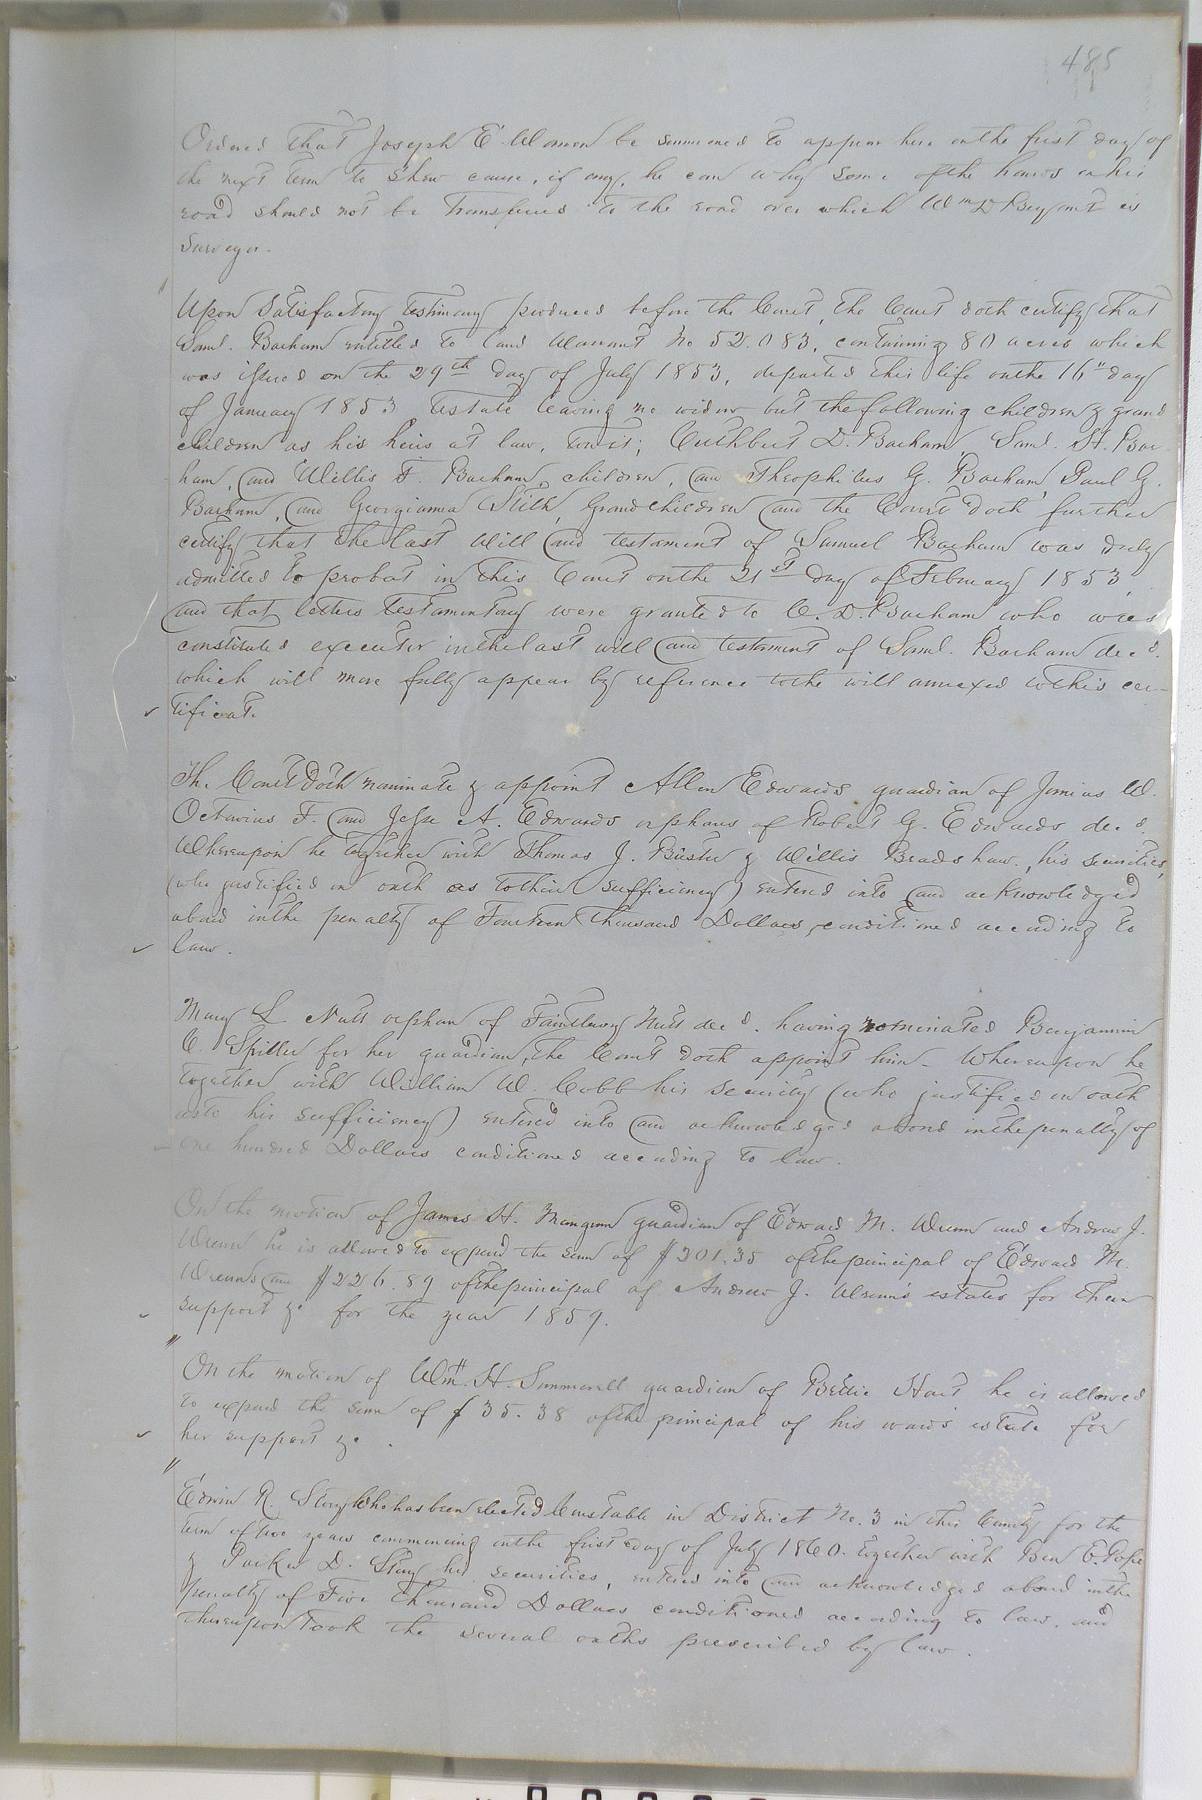 485
Ordered that Joseph E. Women be summoned to appear here on the first day of
the next term to shew cause, if any, he can why some of the hands on his
road should not be transferred to the road over which Wm D Bryant is
Surveyor.
Upon satisfactory testimony produced before the Court, the Court doth certify that
Saml. Barham entitled to land Warrant No 52.083, containing 80 acres which
was issued on the 29th day of July 1853, departed this life on the 16" day
of January 1853 testate leaving no widow but the following children & grand
children as his heirs at law, towit; Cuthbert D. Barham, Saml. H. Bar-
ham, and Willis F. Barham, children, and Theophilus G. Barham, Paul G.
Barham, and Georgianna Stith, Grandchildren and the Court doth further
certify that the last Will and testament of Samuel Barham was duly
admitted to probat in this Court on the 21st day of February 1853,
and that letters testamentary were granted to C. D. Barham who was
constituted executor in the last will and testament of Saml. Barham decd.
which will more fully appear by reference to the will annexed to this cer-
tificate.
The Court doth nominate & appoint Allen Edwards guardian of Junius W.
Octavius F. and Jesse A. Edwards orphans of Robert G. Edwards decd.
Whereupon he together with Thomas J. & Willis Beadshaw, his securities,
(who justified on oath as to their sufficiency) entered into and acknowledged
abond in the penalty of Fourteen Thousand Dollars, conditioned according to
law.
Mary L Nutt orphan of Nutt decd. having nominated Benjamin
C. Spiller for her guardian, the Court doth appoint him - Whereupon he
together with William W. Cobb his security (who justified on oath
as to his sufficiency) entered into and acknowledged abond in the penalty of
One hundred Dollars conditioned according to law.
On the motion of James H. Mangum guardian of Edward M. Wrenn and Andrew J.
Wrenn he is allowed to expend the sum of $201.35 of the principal of Edward M.
Wrenn's and $226.89 of the principal of Andrew J. Wrenn's estates for their
support &c for the year 1859.
On the motion of Wm. H. Summerell guardian of Bettie Hart he is allowed
to expend the sum of $35.38 of the principal of his ward's estate for
her support &c.
Edwin R. Story who has been elected Constable in District No. 3 in this County for the
term of two years commencing on the first day of July 1860. together with Ben E. Pope
& Parker D. Story his securities, entered into and acknowledged abond in the
penalty of Five Thousand Dollars conditioned according to law. and
thereupon took the several oaths prescribed by law.